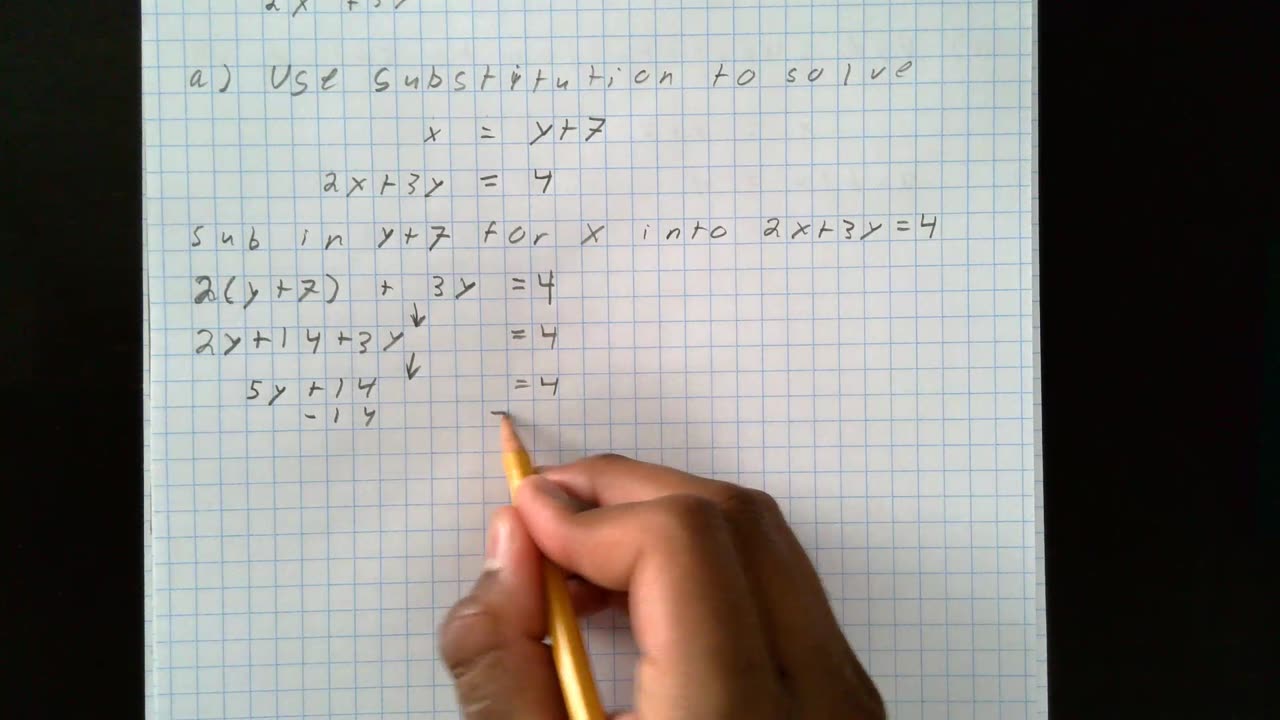 a) Use Substitution to solve
x = y+7
2x+3y = 4
Sub in y+7 for x into 2x+3y=4
2(y+7) + 3y =4
↓
2y+14+3y =4
↓
5y+14 =4
-14 -